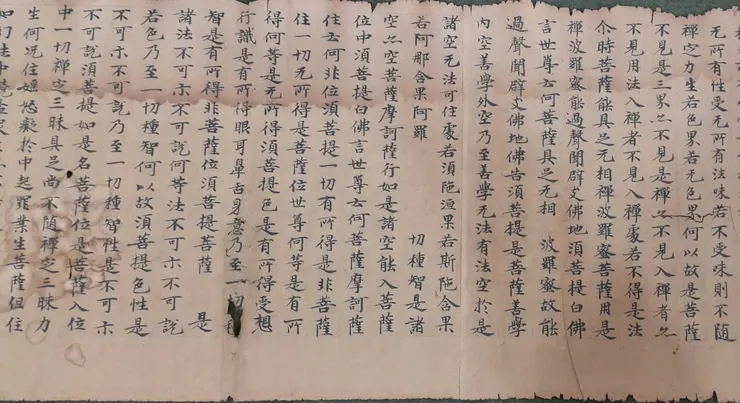 无所有性受无所有法味若不受味則不随
禪定力生若色界若无色界何以故是菩薩
不見是三界亦不見是禪亦不見入禪者亦
不見用法入禪者不見入禪處若不得是法
尒時菩薩能具足无相禪波羅蜜菩薩用是
禪波羅蜜能過聲聞辟支佛地須菩提白佛
言世尊云何菩薩具足无相 波羅蜜故能
過聲聞辟支佛地佛告須菩提是菩薩善學
内空善學外空乃至善學无法有法空於是
諸空无法可住處若須陁洹果若斯陁含果
若阿那含果阿羅 切種智是諸
空亦空菩薩摩訶薩行如是諸空能入菩薩
位中須菩提白佛言世尊云何菩薩摩訶薩
住云何非位須菩提一切有所得是非菩薩
住一切无所得是菩薩位世尊何等是有所
得何等是无所得須菩提色是有所得受想
行識是有所得眼耳鼻舌身意乃至一切
智是有所得非菩薩位須菩提菩薩 是
諸法不可示不可說何等法不可示不可說
若色乃至一切種智何以故須菩提色性是
不可示不可說乃至一切種智性是不可示
不可說須菩提如是名菩薩位是菩薩入位
中一切禪定三昧具足尚不随禪定三昧力
生何况住婬怒癡於中起罪業生菩薩但住
如幻法中